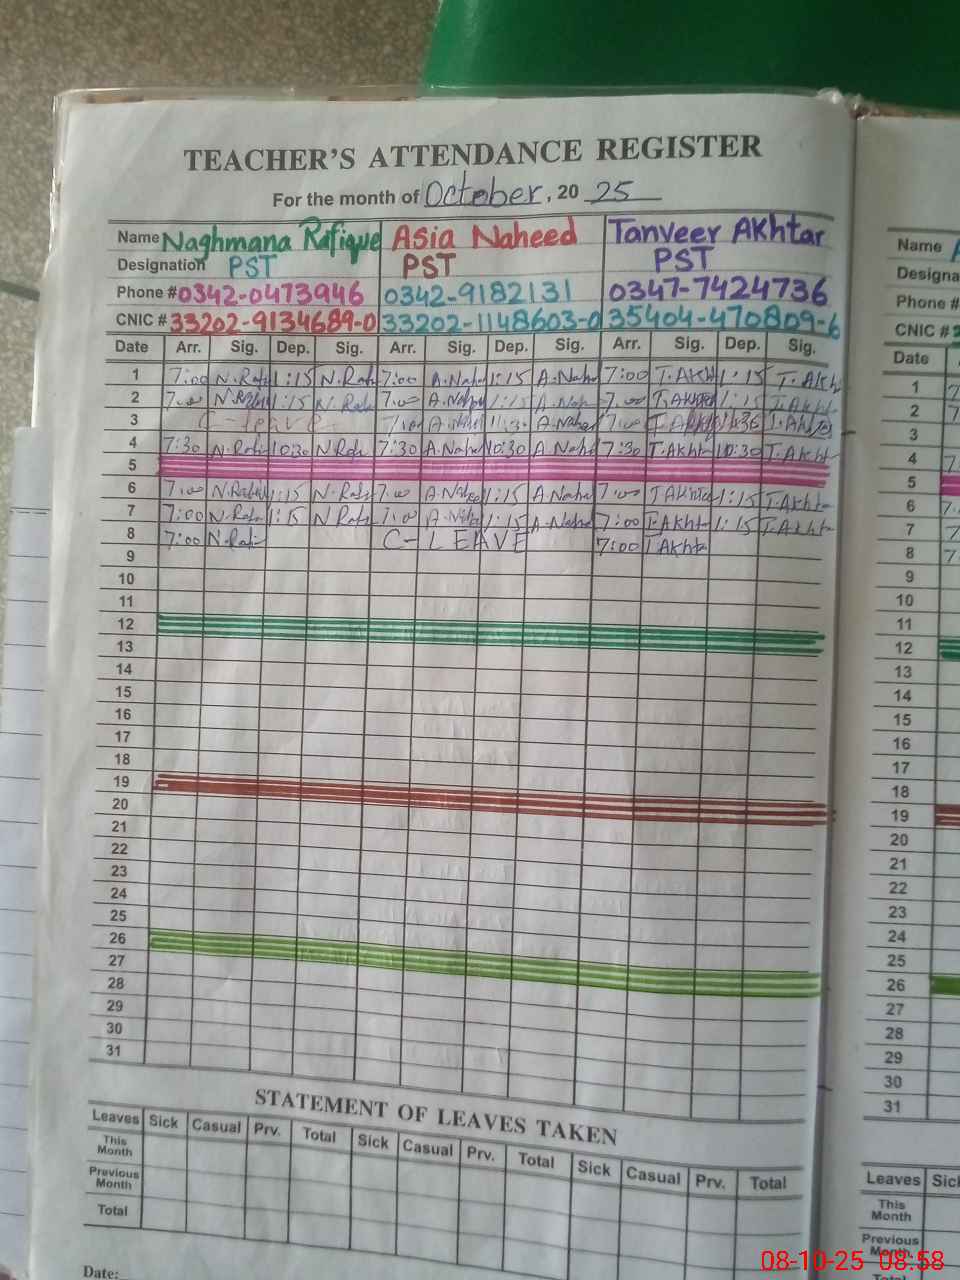 TEACHER'S ATTENDANCE REGISTER
For the month of October, 2025
Name Naghmana Rafique Asia Naheed Tanveer Akhtar
Designation PST PST PST
Phone # 0342-0473946 0342-9182131 0347-7424736
CNIC # 33202-9134689-0 33202-1148603-0 35404-470809-6
Date Arr. Sig. Dep. Sig. Arr. Sig. Dep. Sig. Arr. Sig. Dep. Sig.
1 7:00 N.Rafi 1:15 N.Rafi 7:00 A.Nahe 1:15 A.Nahe 7:00 T.AKh 1:15 T.AKh
2 7:00 1:15 N.Rafi 7:00 A.Nahe 1:15 A.Nahe 7:00 1:15 T.Akhta
3 C-leave 7:00 11:30 A.Nahe 7:00 11:36
4 7:30 N.Rafi 10:30 N.Rafi 7:30 A.Nahe 10:30 A.Nahe 7:30 T.Akhta 10:30 T.Akht
5
6 7:00 1:15 N.Rafi 7:00 A.Naheed 1:15 A.Nahe 7:00 1:15 T.Akhta
7 7:00 N.Rafi 1:15 N.Rafi 7:00 1:15 A.Nahe 7:00 T.Akht 1:15 T.Akhta
8 7:00 N.Rafi C-LEAVE 7:00 T.Akhta
9
10
11
12
13
14
15
16
17
18
19
20
21
22
23
24
25
26
27
28
29
30
31
STATEMENT OF LEAVES TAKEN
Leaves Sick Casual Prv. Total Sick Casual Prv. Total Sick Casual Prv. Total
This Month
Previous Month
Total
Date:
Name
Designa
Phone #
CNIC #
Date
1
2
3
4
5
6
7
8
9
10
11
12
13
14
15
16
17
18
19
20
21
22
23
24
25
26
27
28
29
30
31
Leaves Sic
This Month
Previous Month
08-10-25 08:58